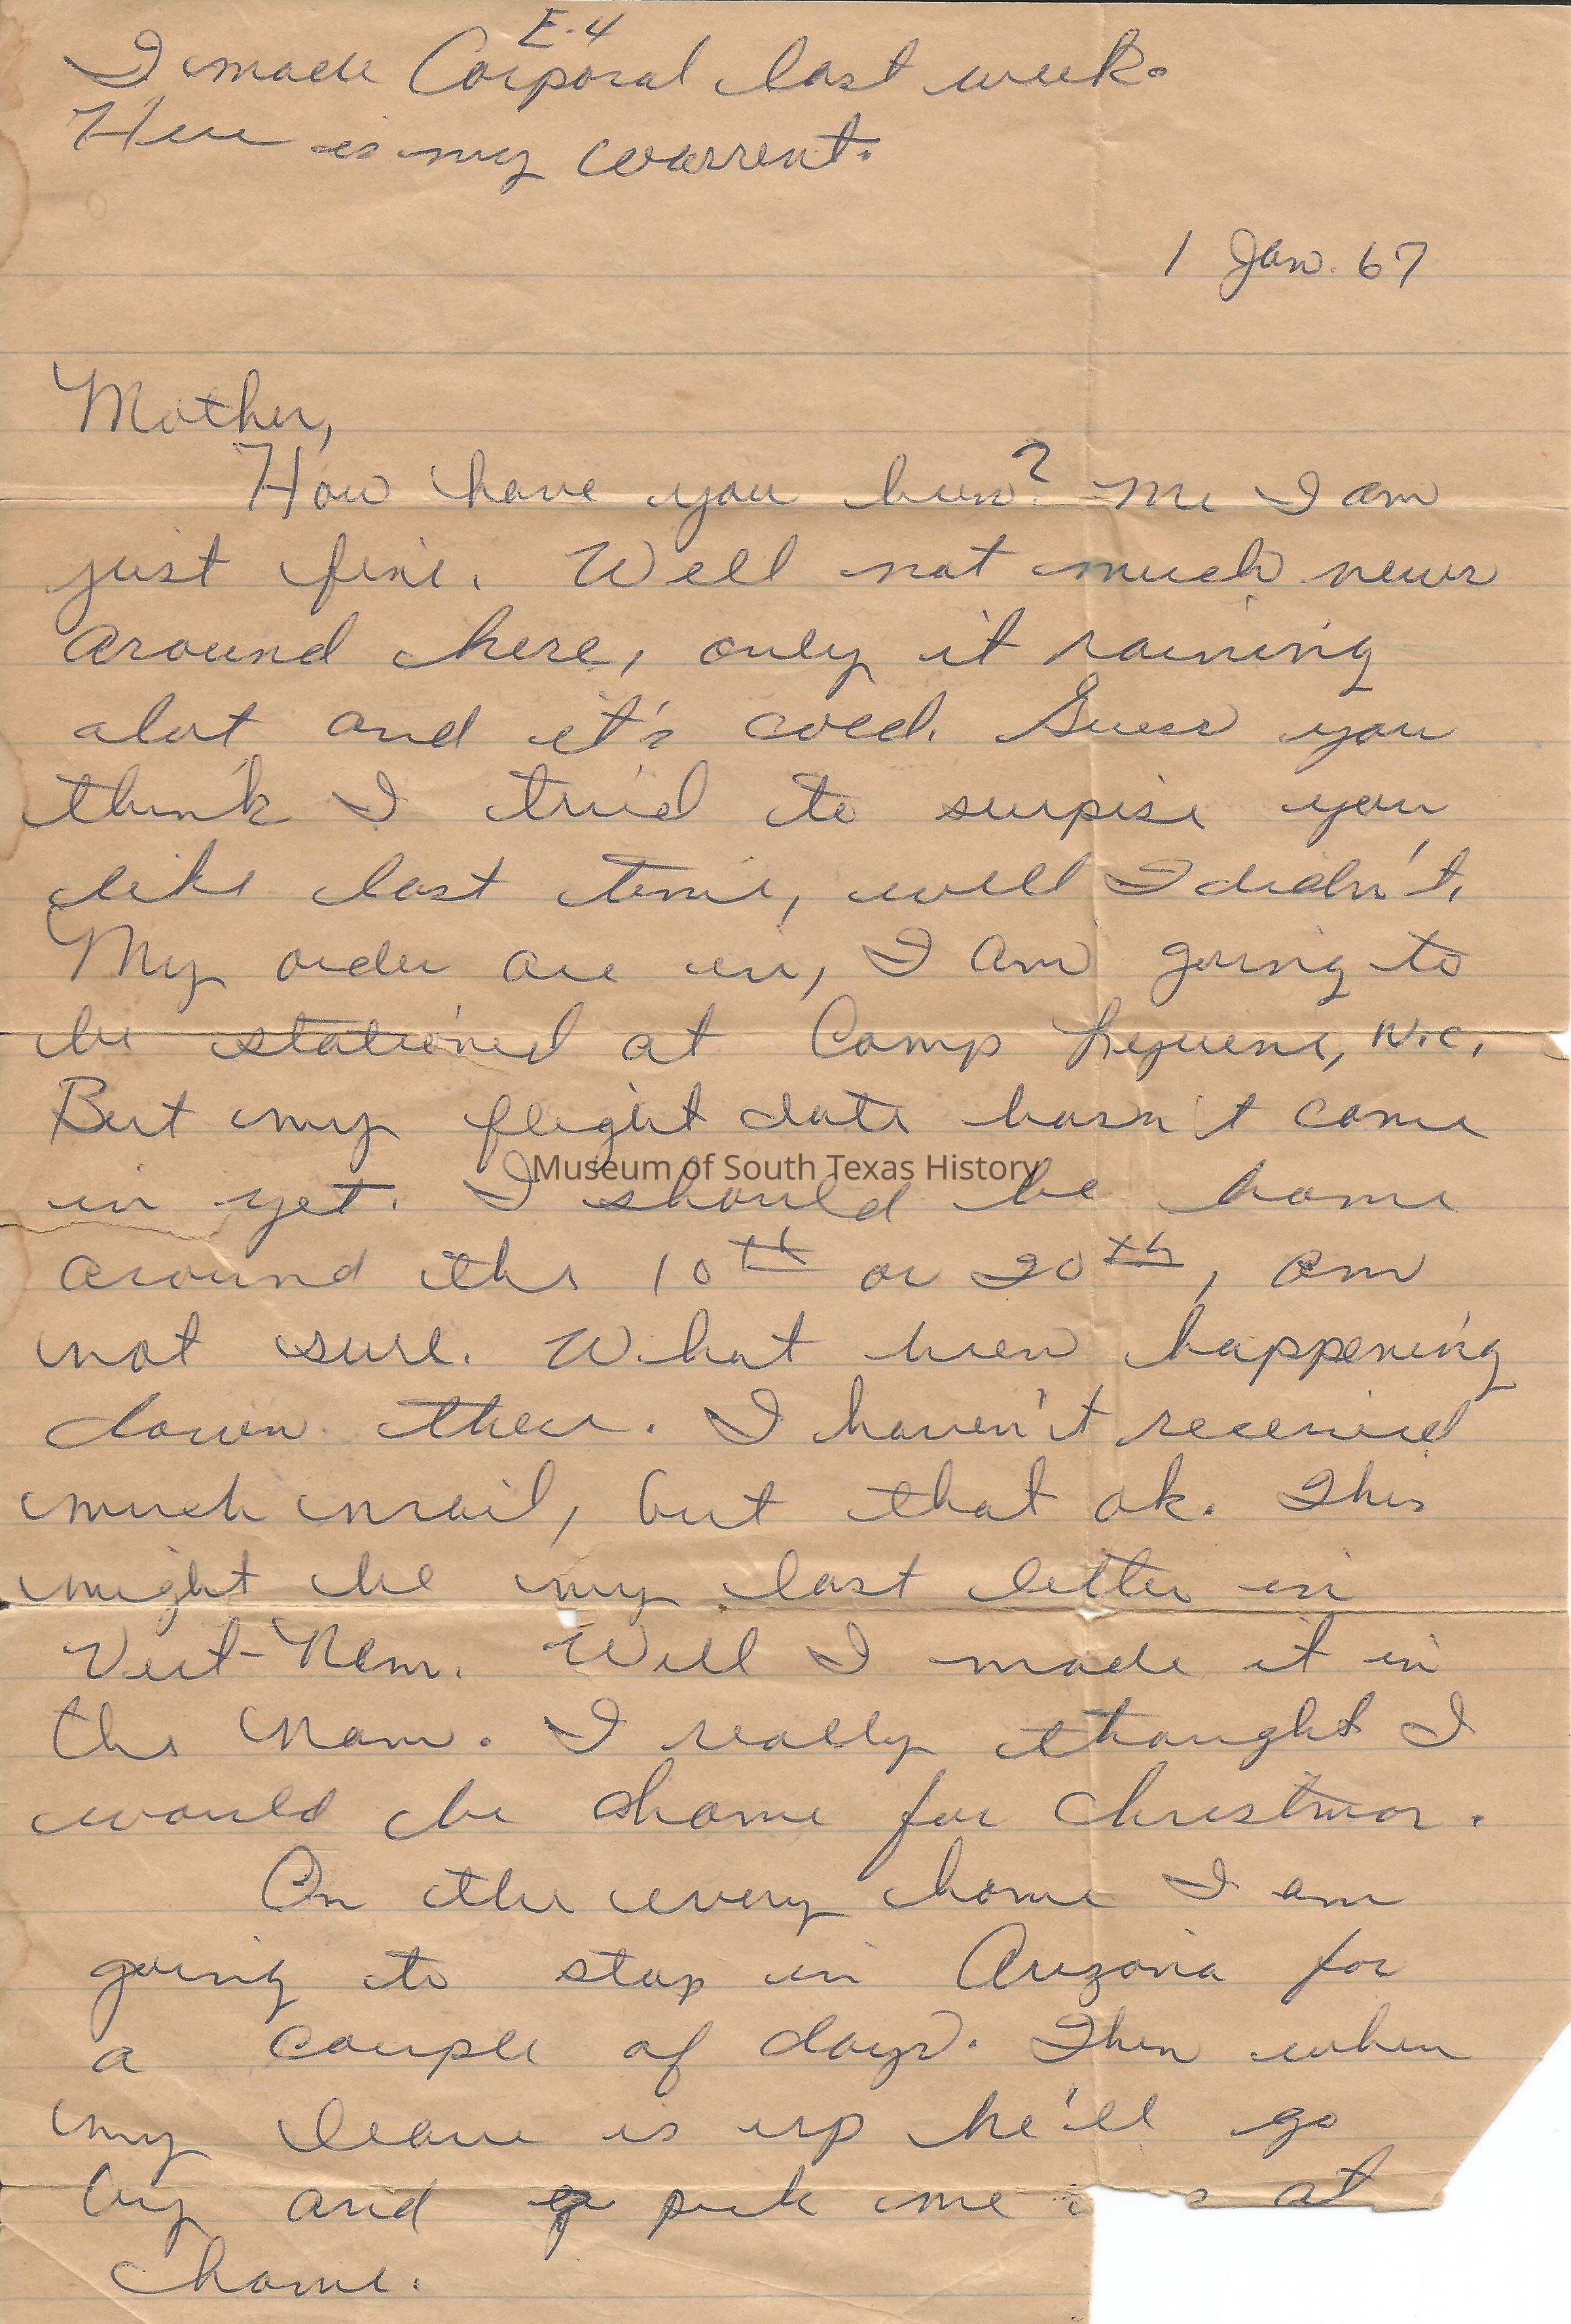 E-4
I made Corporal last week.
Here is my warrent.
1 Jan. 67
Mother,
How have you been? Me I am
just fine. Well not much news
around here, only it raining
alot and it's cold. Guess you
think I tried to surpise you
like last time, well I didn't.
My order are in, I am going to
be stationed at Camp Lejuene, N.C.
But my flight date hasn't come
in yet. I should be home
Museum of South Texas History
around the 10th or 20th, am
not sure. What been happening
down there. I haven't received
much mail, but that ok. This
might be my last letter in
Viet-Nam. Well I made it in
the Nam. I really thought I
would be home for Christmas.
On the way home I am
going to stop in Arizona for
a couple of days. Then when
my leave is up he'll go
by and pick me at
home.